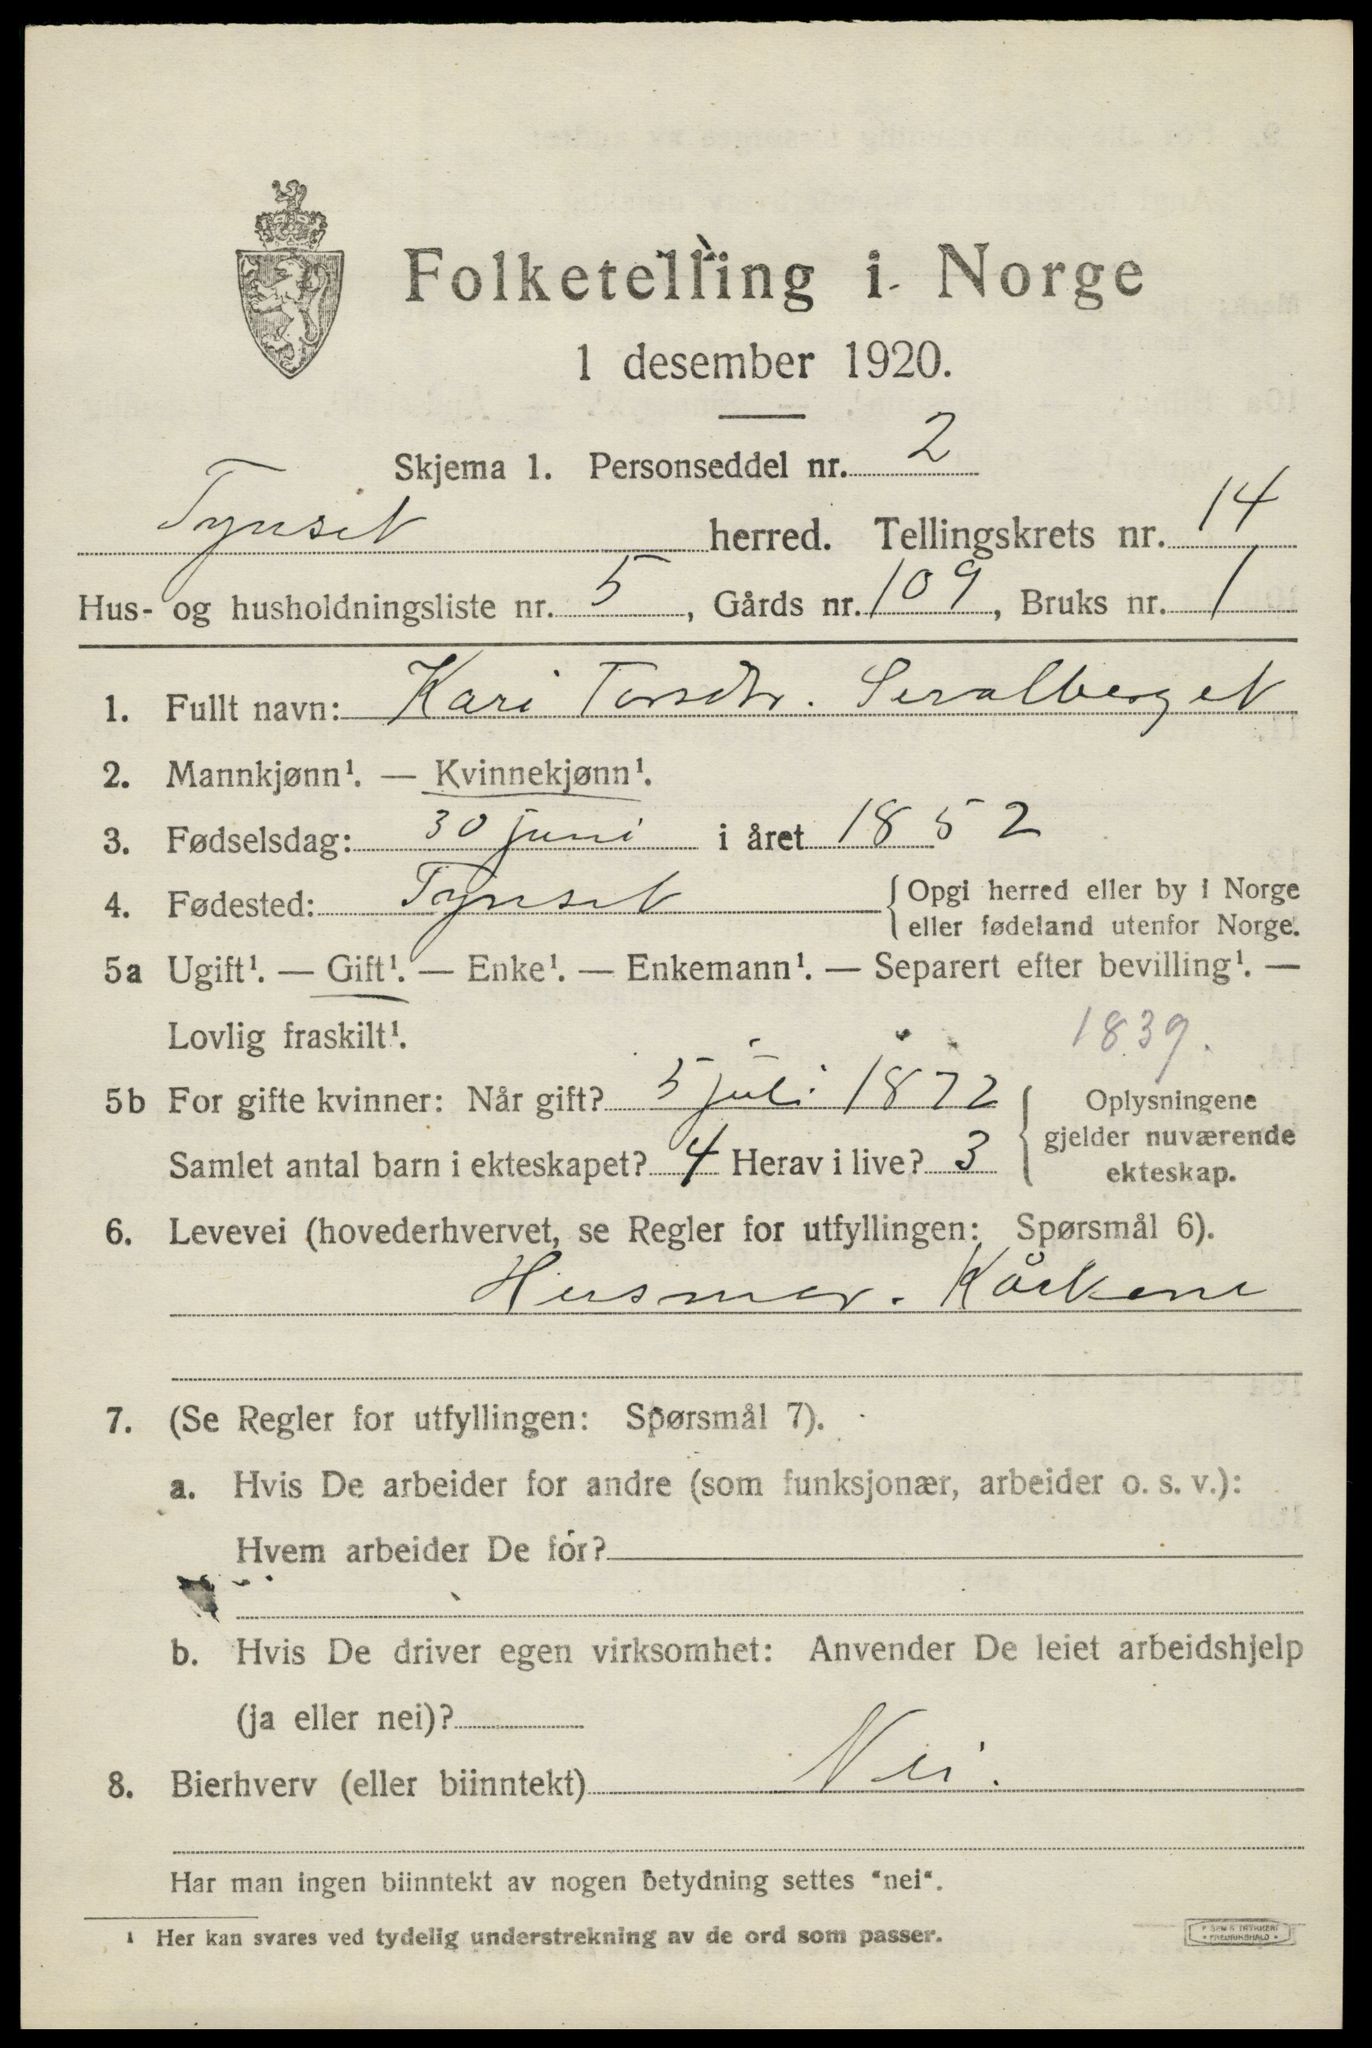 Folketelling i Norge
1 desember 1920.
Skjema 1. Personseddel nr. 2
Tynset herred. Tellingskrets nr. 14
Hus- og husholdningsliste nr. 5, Gårds nr. 109, Bruks nr. 1
1. Fullt navn: Kari Torsdtr. Seralberget
2. Mannkjønn¹. — Kvinnekjønn¹.
3. Fødselsdag: 30 juni i året 1852
4. Fødested: Tynset {Opgi herred eller by i Norge
eller fødeland utenfor Norge.
5a Ugift¹. — Gift¹. — Enke¹. — Enkemann¹. — Separert efter bevilling¹. —
Lovlig fraskilt¹. 1839.
5b For gifte kvinner: Når gift? 5 juli 1872 { Oplysningene
gjelder nuværende
Samlet antal barn i ekteskapet? 4 Herav i live? 3 ekteskap.
6. Levevei (hovederhvervet, se Regler for utfyllingen: Spørsmål 6).
Husmor.
7. (Se Regler for utfyllingen: Spørsmål 7).
a. Hvis De arbeider for andre (som funksjonær, arbeider o. s. v.):
Hvem arbeider De for?
b. Hvis De driver egen virksomhet: Anvender De leiet arbeidshjelp
(ja eller nei)?
8. Bierhverv (eller biinntekt) Nei.
Har man ingen biinntekt av nogen betydning settes "nei".
¹ Her kan svares ved tydelig understrekning av de ord som passer.